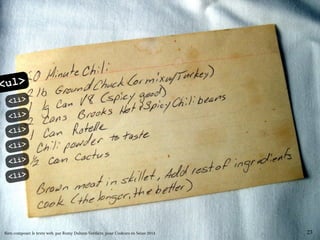 <ul>
60 Minute Chili
<li> 2 lb Ground Chuck (or mix w/Turkey)
<li> 1 ½ Can V8 (spicy good)
<li> 2 Cans Brooks Hot & Spicy Chili beans
<li> 1 Can Rotelle
<li> Chili powder to taste
<li> ½ can Cactus
Brown meat in skillet, Add rest of ingredients
cook (the longer, the better)
Bien composer le texte web, par Romy Duhem-Verdière, pour Couleurs en Seine 2014
23